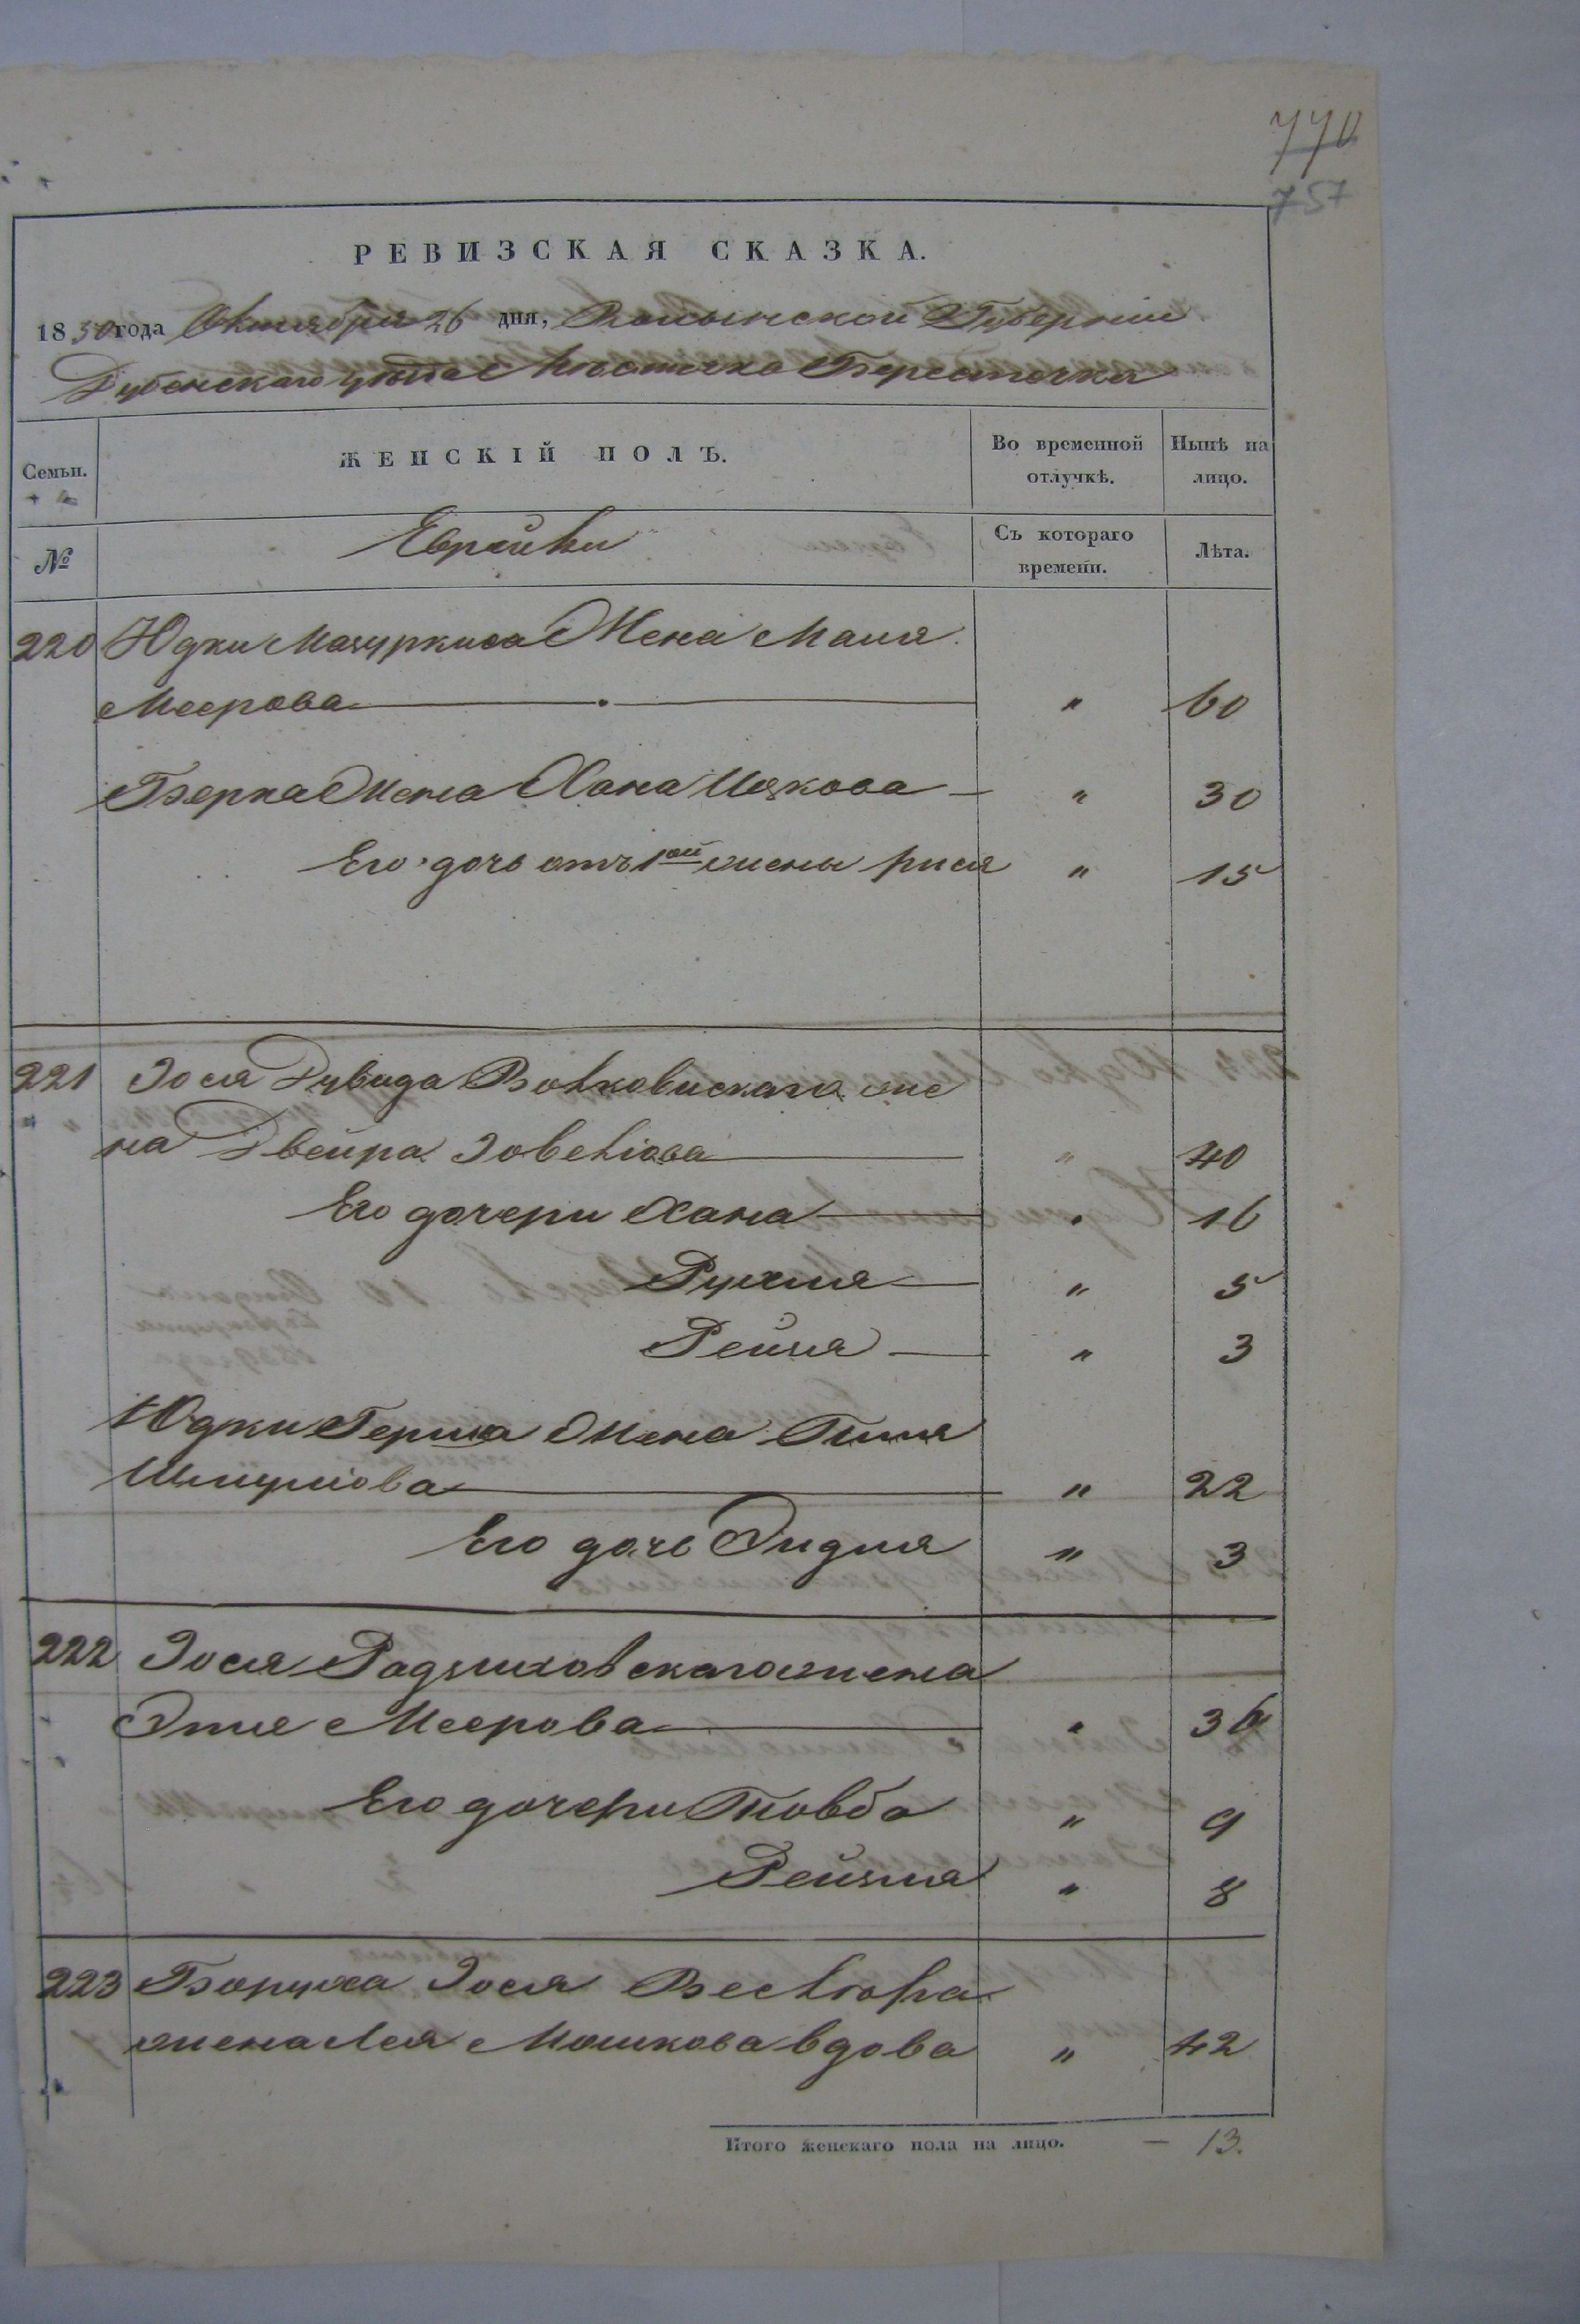 770
757
РЕВИЗСКАЯ СКАЗКА.
1850 года Октября 26 дня, Волынской Губерніи
Дубенскаго уезда Местечка Берестечка
Семьи.
ЖЕНСКІЙ ПОЛЪ.
Во временной отлучкѣ.
Нынѣ на лицо.
№
Еврейки
Съ котораго времени.
Лѣта.
220 Юдки Мазуркиса Жена Маля
Меерова " 60
Берка Жена Хана Ицкова " 30
Его дочь отъ 1ой жены Рися " 15
221 Іося Дувида Волковискаго же
на Двейра Іовеліова " 40
Его дочери Хана " 16
Рухля " 5
Рейзя " 3
Юдки Герша Жена Гитля
Шмулiова " 22
Его дочь Эидля " 3
222 Іося Радзиховскаго жена
Этля Меерова " 36
Его дочери Товба " 9
Рейзля " 8
223 Боруха Іося Веслюра
жена Лея Мошкова вдова " 42
Итого женскаго пола на лицо. — 13.